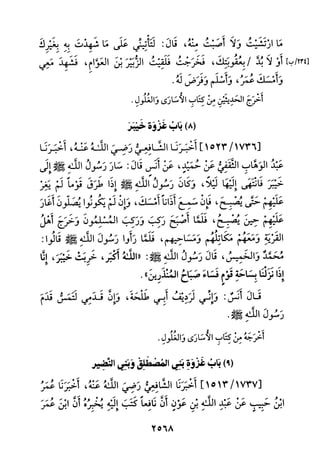 مَا ارْتَشَيْتُ وَلَا أَصَبْتُ مِنْهُ، قَالَ: لَتَأْتِيَنِّي عَلَى مَا شَهِدْتَ بِهِ بِغَيْرِكَ
[٢٢٤/ب] أَوْ لَا بُدَّ / بِعُقُوبَتِكَ، فَخَرَجْتُ فَلَقِيتُ الزُّبَيْرَ بْنَ الْعَوَّامِ، فَشَهِدَ مَعِي
وَأَمْسَكَ عُمَرُ، وَأَسْلَمَ وَفَرَضَ لَهُ.
أَخْرَجَ الْحَدِيثَيْنِ مِنْ كِتَابِ الْأُسَارَى وَالْغُلُولِ.
(٨) بَابُ غَزْوَةِ خَيْبَرَ
[١٥٢٣/١٧٣٦] أَخْبَرَنَا الشَّافِعِيُّ رَضِيَ اللَّهُ عَنْهُ، أَخْبَرَنَا
عَبْدُ الْوَهَّابِ الثَّقَفِيُّ عَنْ حُمَيْدٍ، عَنْ أَنَسٍ قَالَ: سَارَ رَسُولُ اللَّهِ ﷺ إِلَى
خَيْبَرَ فَانْتَهَى إِلَيْهَا لَيْلًا، وَكَانَ رَسُولُ اللَّهِ ﷺ إِذَا طَرَقَ قَوْمًا لَمْ يَغِرْ
عَلَيْهِمْ حَتَّى يُصْبِحَ، فَإِنْ سَمِعَ أَذَانًا أَمْسَكَ، وَإِنْ لَمْ يَكُونُوا يُصَلُّونَ أَغَارَ
عَلَيْهِمْ حِينَ يُصْبِحُ، فَلَمَّا أَصْبَحَ رَكِبَ وَرَكِبَ الْمُسْلِمُونَ وَخَرَجَ أَهْلُ
الْقَرْيَةِ وَمَعَهُمْ مَكَاتِلُهُمْ وَمَسَاحِيهِمْ، فَلَمَّا رَأَوْا رَسُولَ اللَّهِ ﷺ قَالُوا:
مُحَمَّدٌ وَالْخَمِيسُ، قَالَ رَسُولُ اللَّهِ ﷺ: «اللَّهُ أَكْبَرُ، خَرِبَتْ خَيْبَرُ، إِنَّا
إِذَا نَزَلْنَا بِسَاحَةِ قَوْمٍ فَسَاءَ صَبَاحُ الْمُنْذَرِينَ».
قَالَ أَنَسٌ: وَإِنِّي لَرَدِيفُ أَبِي طَلْحَةَ، وَإِنَّ قَدَمِي لَتَمَسُّ قَدَمَ
رَسُولِ اللَّهِ ﷺ.
أَخْرَجَهُ مِنْ كِتَابِ الْأُسَارَى وَالْغُلُولِ.
(٩) بَابُ غَزْوَةِ بَنِي الْمُصْطَلِقِ وَبَنِي النَّضِيرِ
[١٥١٣/١٧٣٧] أَخْبَرَنَا الشَّافِعِيُّ رَضِيَ اللَّهُ عَنْهُ، أَخْبَرَنَا عُمَرُ
ابْنُ حَبِيبٍ عَنْ عَبْدِ اللَّهِ بْنِ عَوْنٍ أَنَّ نَافِعًا كَتَبَ إِلَيْهِ يُخْبِرُهُ أَنَّ ابْنَ عُمَرَ
٢٥٦٨